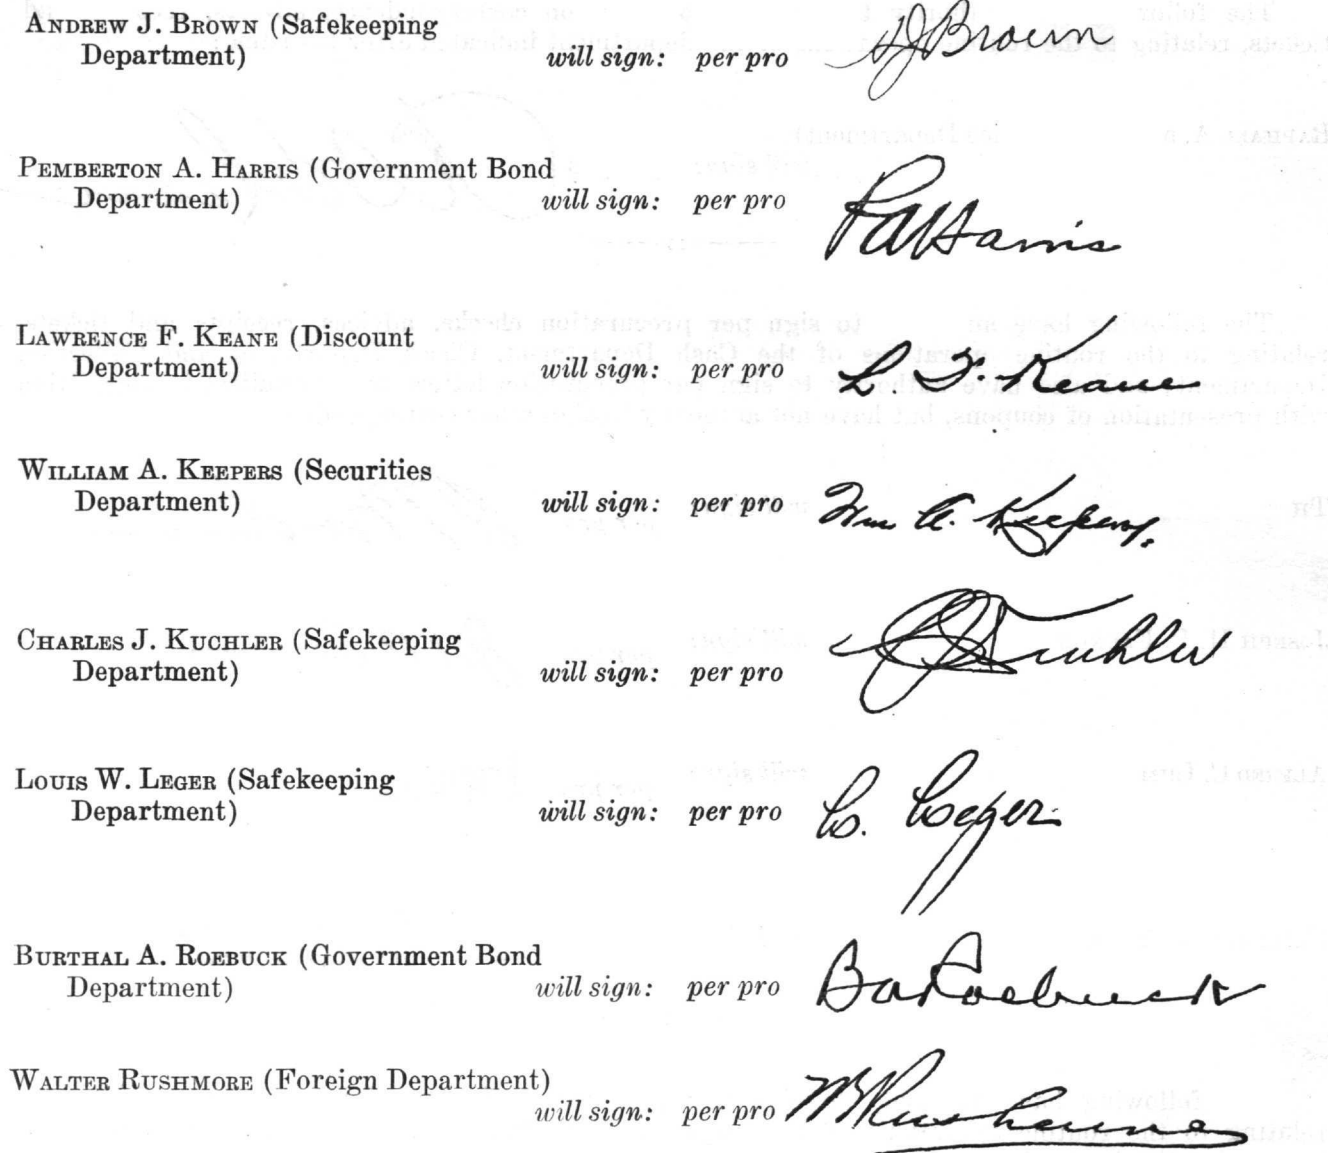 ANDREW J. BROWN (Safekeeping
Department) will sign: per pro AJBrown
PEMBERTON A. HARRIS (Government Bond
Department) will sign: per pro PAHarris
LAWRENCE F. KEANE (Discount
Department) will sign: per pro L. F. Keane
WILLIAM A. KEEPERS (Securities
Department) will sign: per pro Wm A. Keepers.
CHARLES J. KUCHLER (Safekeeping
Department) will sign: per pro CJKuchler
LOUIS W. LEGER (Safekeeping
Department) will sign: per pro L. Leger
BURTHAL A. ROEBUCK (Government Bond
Department) will sign: per pro BaRoebuck
WALTER RUSHMORE (Foreign Department)
will sign: per pro WRushmore